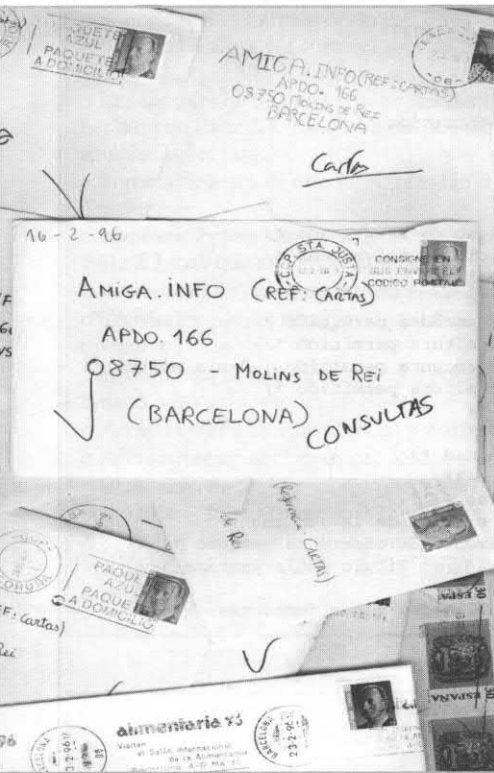 PAQUETE
AZUL
PAQUETE
A DOMICILIO
AMIGA.INFO (REF: CARTAS)
APDO. 166
08750 MOLINS DE REI
BARCELONA
Cartas
16-2-96
COP. STA. JUST
CONSIGNE EN
SUS ENVIOS EL
CODIGO POSTAL
AMIGA.INFO (REF: CARTAS)
APDO. 166
08750 - MOLINS DE REI
(BARCELONA)
CONSULTAS
(Referencia CARTAS)
de Rei
CORUÑA
PAQUETE
AZUL
PAQUETE
A DOMICILIO
EF: Cartas)
Rei
ESPAÑA
ESPAÑA
96
alimentaria 96
Visiten
el Salón Internacional
de la Alimentación
BARCELONA
BARCELONA
23-2-96